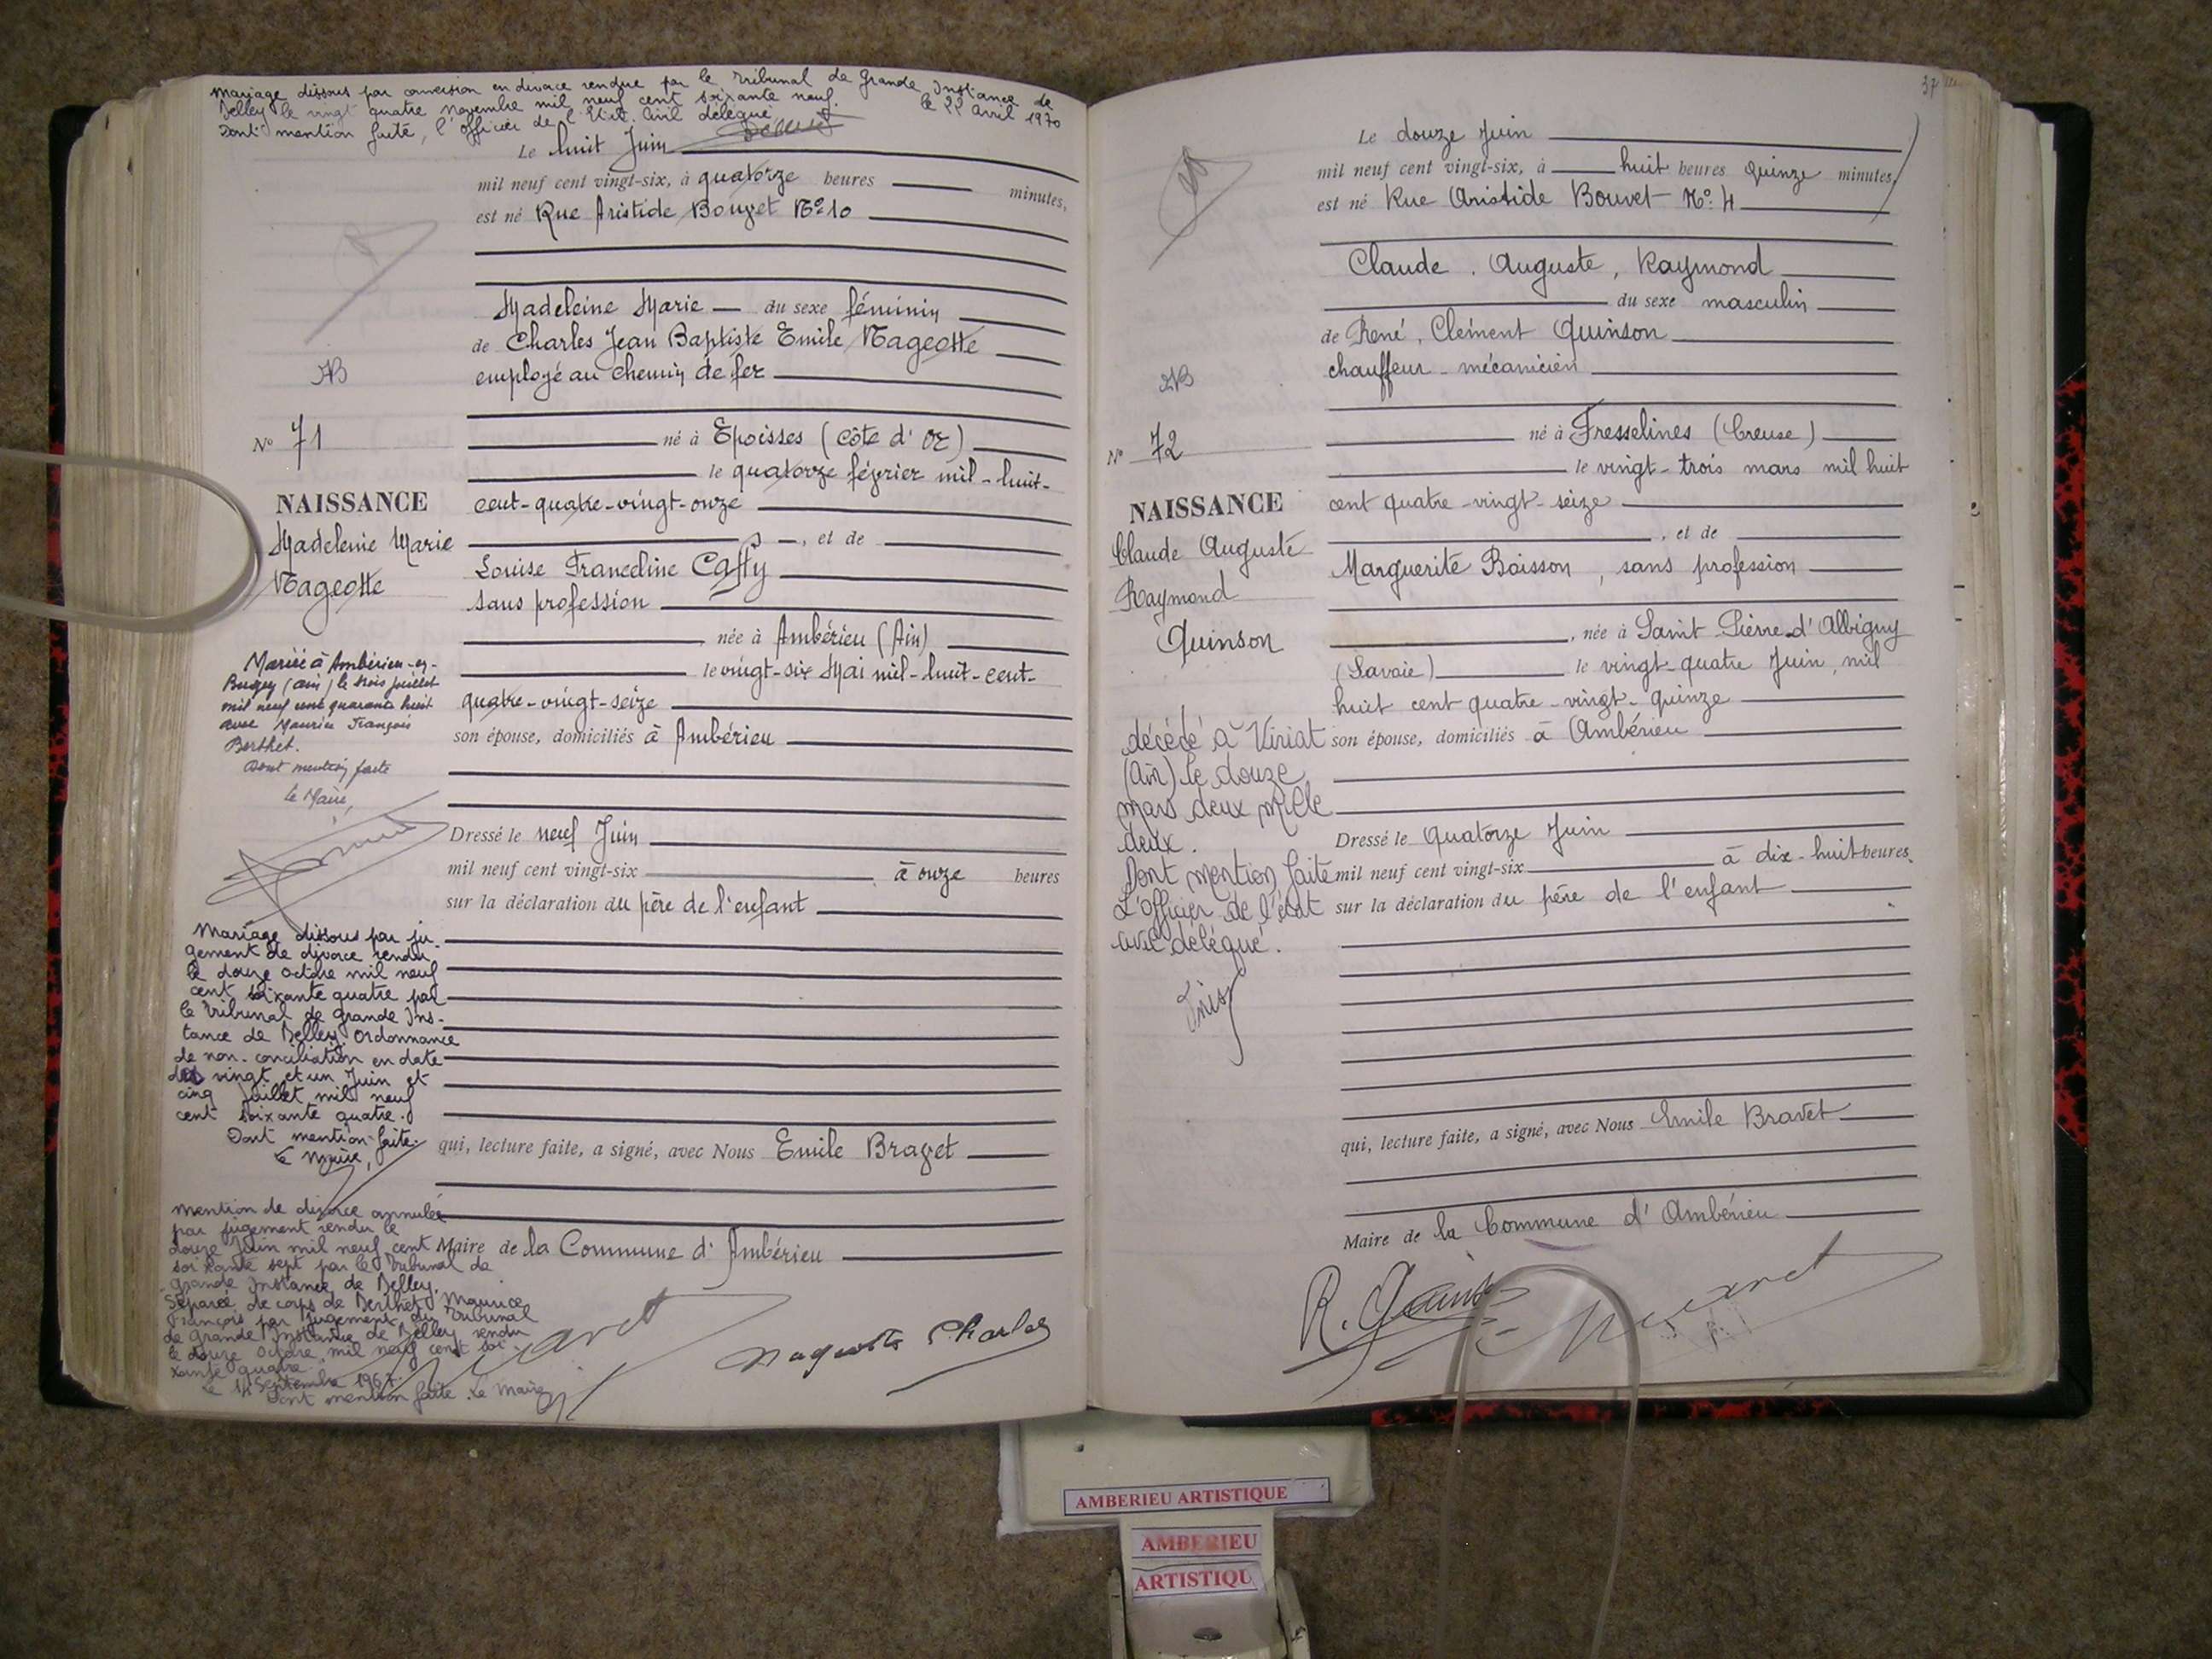 Mariage dissous par conversion en divorce rendue par le Tribunal de Grande Instance de
Belley le vingt quatre Novembre mil neuf cent soixante neuf.
le 22 avril 1970
Dont mention faite, l'officier de l'Etat Civil délégué
Le huit Juin
mil neuf cent vingt-six, à quatorze heures minutes,
est né Rue Aristide Bouvet N° 10
Madeleine Marie du sexe féminin
de Charles Jean Baptiste Emile Nageotte
employé au chemin de fer
né à Epoisses (Côte d'Or)
le quatorze février mil-huit-
cent-quatre-vingt-onze
, et de
Louise Franceline Caffy
sans profession
née à Ambérieu (Ain)
le vingt-six Mai mil-huit-cent-
quatre-vingt-seize
son épouse, domiciliés à Ambérieu
Dressé le neuf Juin
mil neuf cent vingt-six à onze heures
sur la déclaration du père de l'enfant
qui, lecture faite, a signé, avec Nous Emile Bravet
Maire de la Commune d'Ambérieu
Nageotte Charles
N° 71
NAISSANCE
Madeleine Marie
Nageotte
Mariée à Ambérieu-en-
Bugey (Ain) le trois juillet
mil neuf cent quarante huit
avec Maurice François
Berthet.
Dont mention faite
Le Maire,
Mariage dissous par ju-
gement de divorce rendu
le douze octobre mil neuf
cent soixante quatre par
le Tribunal de Grande Ins-
tance de Belley. Ordonnance
de non-conciliation en date
des vingt et un Juin et
cinq Juillet mil neuf
cent soixante quatre.
Dont mention faite.
Le Maire,
Mention de divorce annulée
par jugement rendu le
douze Juin mil neuf cent
soixante sept par le Tribunal de
Grande Instance de Belley.
Séparée de corps de Berthet Maurice
François par jugement du Tribunal
de Grande Instance de Belley rendu
le douze Octobre mil neuf cent soi
xante quatre.
Le 14 Septembre 1967.
Dont mention faite. Le Maire
37
Le douze Juin
mil neuf cent vingt-six, à huit heures quinze minutes,
est né Rue Aristide Bouvet N° 4
Claude, Auguste, Raymond
du sexe masculin
de René, Clément Quinson
chauffeur-mécanicien
né à Fresselines (Creuse)
le vingt-trois mars mil huit
cent quatre-vingt-seize
, et de
Marguerite Boisson, sans profession
, née à Saint-Pierre d'Albigny
(Savoie) le vingt-quatre Juin, mil
huit cent quatre-vingt-quinze
son épouse, domiciliés à Ambérieu
Dressé le Quatorze Juin
mil neuf cent vingt-six à dix-huit heures
sur la déclaration du père de l'enfant
qui, lecture faite, a signé, avec Nous Emile Bravet
Maire de la Commune d'Ambérieu
N° 72
NAISSANCE
Claude Auguste
Raymond
Quinson
décédé à Viriat
(Ain) le douze
mars deux mille
deux.
Dont mention faite
L'officier de l'état
civil délégué.
AMBERIEU ARTISTIQUE
AMBERIEU
ARTISTIQU